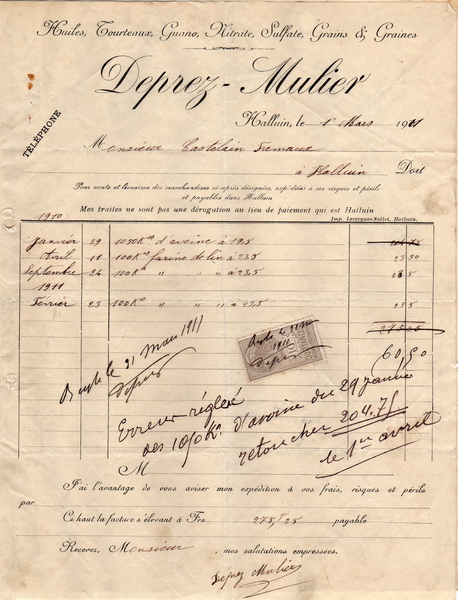 Huiles, Tourteaux, Guano, Nitrate, Sulfate, Grains & Graines
Deprez-Mulier
TÉLÉPHONE
Halluin, le 1er Mars 1911
Monsieur Castelein Tremaux
à Halluin Doit
Pour vente et livraison des marchandises ci-après désignées, expédiées à ses risques et périls
et payables dans Halluin
Mes traites ne sont pas une dérogation au lieu de paiement qui est Halluin
Imp. Lecocque-Nollet, Halluin.
1910
Janvier 29 1050 Kos d'avoine à 19,5
Avril 11 100 Kos farine de lin à 23,5 23.50
Septembre 24 100 Kos " " à 23,5 23.5
1911
Février 23 100 Kos " " à 23,5 23.5
60,50
Acquité le 31 Mars 1911
Deprez
Acquité le 31 Mars
1911
Deprez
10
Erreur réglée
des 1050 Ko. d'avoine du 29 janvier
retoucher 204.75
le 1er avril
M
J'ai l'avantage de vous aviser mon expédition à vos frais, risques et périls
par
Ci haut la facture s'élevant à Frs 275,25 payable
Recevez, Monsieur, mes salutations empressées.
Déprez Mulier